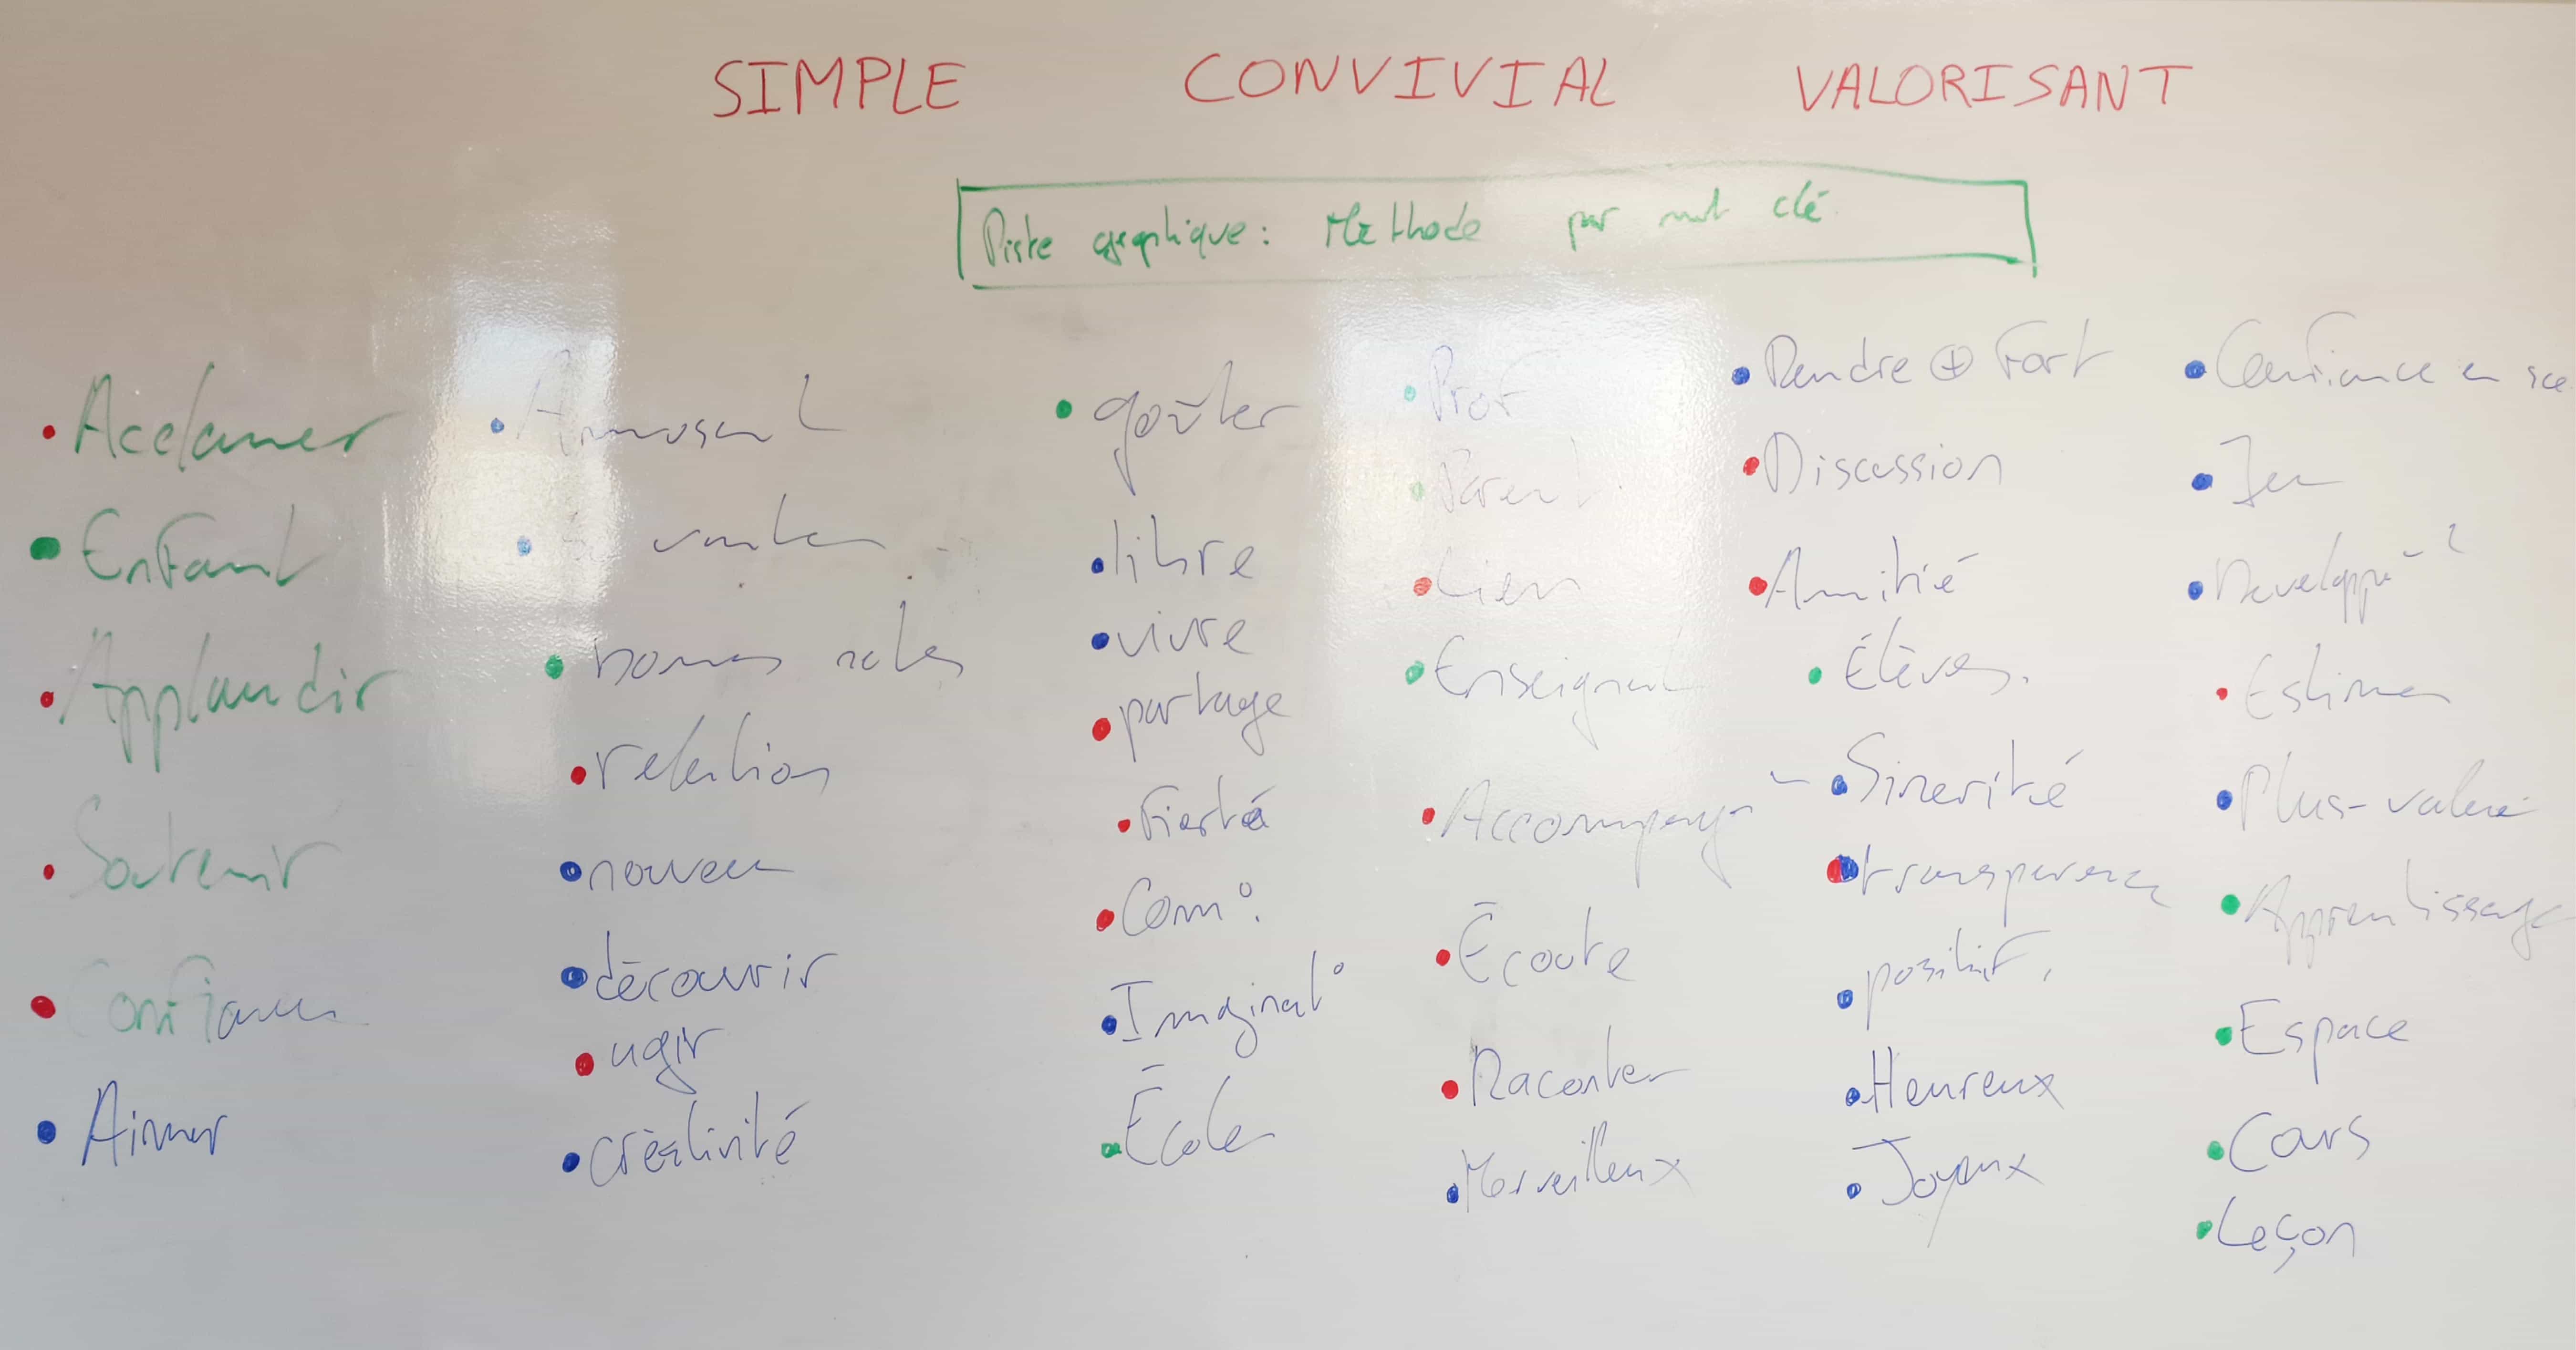 SIMPLE CONVIVIAL VALORISANT
Piste graphique : Methode par mot clé
• Acclamer
• Enfant
• Applaudir
• Soutenir
• Confiance
• Aimer
• Amusant
• bonnes notes
• relation
• nouveau
• découvrir
• ugir
• créativité
• goûter
• libre
• vivre
• partage
• Fierté
• Com°.
• Imaginat°
• École
• Prof
• Parent.
• Lien
• Enseignant
• Accompagn
• Écoute
• Raconter
• Merveilleux
• Rendre ⊕ Fort
• Discussion
• Amitié
• Élèves.
• Sinerité
• transparence
• positif,
• Heureux
• Joyeux
• Confiance en soi
• Jeu
• Estimer
• Plus-value
• Apprentissage
• Espace
• Cours
• Leçon